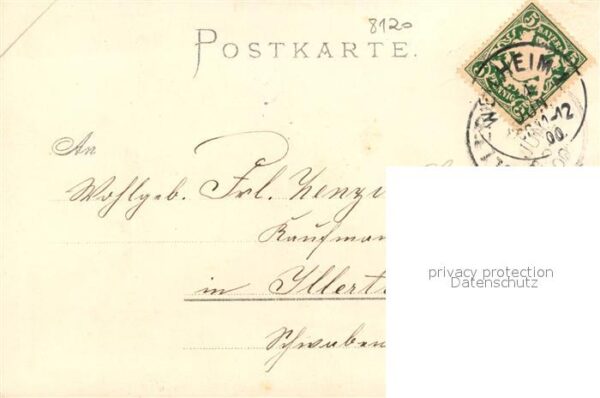 8120
POSTKARTE.
5 BAYERN 5
PFENNIG
HEIM
11-12
00.
An
Wohlgeb. Frl. Kenzi
Kaufman
in Illert
Schwaben
privacy protection
Datenschutz